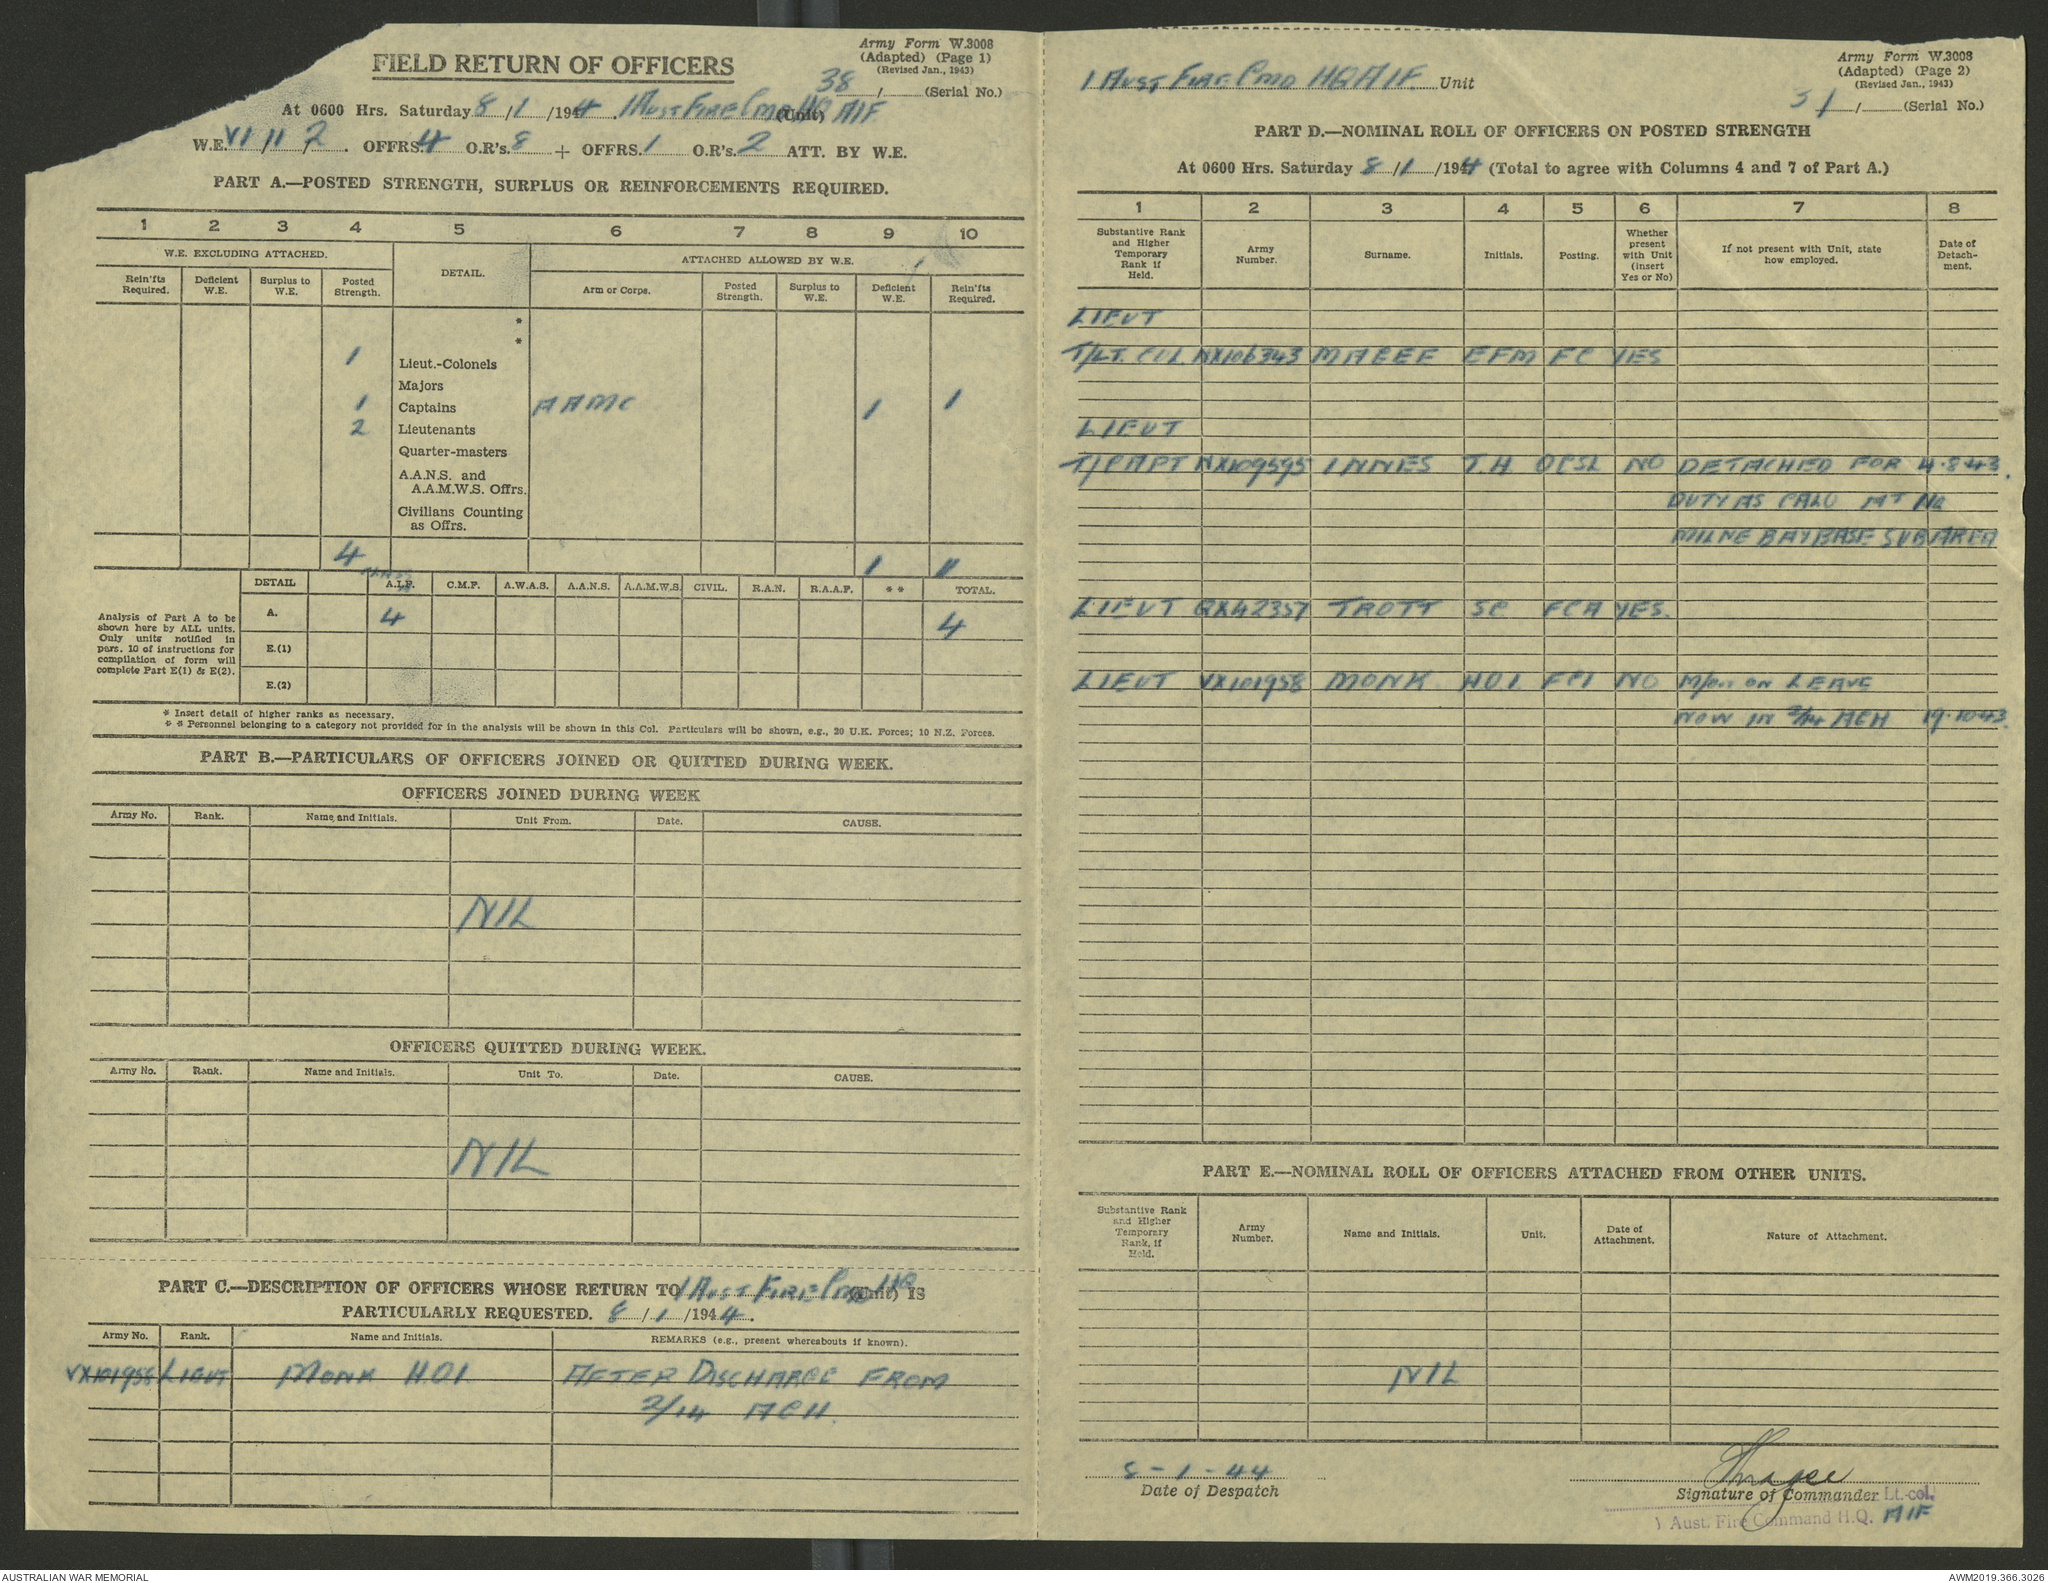 Army Form W.3008
(Adapted) (Page 1)
(Revised Jan., 1943)
FIELD RETURN OF OFFICERS
38 / (Serial No.)
At 0600 Hrs. Saturday 8/1/1944. 1 Aust Fire Cmd HQ AIF (Unit)
W.E. VI 11 2. OFFRS. 4 O.R's. 8 + OFFRS. 1 O.R's. 2 ATT. BY W.E.
PART A.—POSTED STRENGTH, SURPLUS OR REINFORCEMENTS REQUIRED.
1 2 3 4 5 6 7 8 9 10
W.E. EXCLUDING ATTACHED. DETAIL. ATTACHED ALLOWED BY W.E.
Rein'fts Required. Deficient W.E. Surplus to W.E. Posted Strength. Arm or Corps. Posted Strength. Surplus to W.E. Deficient W.E. Rein'fts Required.
*
*
1 Lieut.-Colonels
Majors
1 Captains AAMC 1 1
2 Lieutenants
Quarter-masters
A.A.N.S. and
A.A.M.W.S. Offrs.
Civilians Counting
as Offrs.
4 1 11
DETAIL A.I.F. C.M.F. A.W.A.S. A.A.N.S. A.A.M.W.S. CIVIL. R.A.N. R.A.A.F. * * TOTAL.
Analysis of Part A to be
shown here by ALL units.
Only units notified in
para. 10 of instructions for
compilation of form will
complete Part E(1) & E(2).
A. 4 4
E.(1)
E.(2)
* Insert detail of higher ranks as necessary.
* * Personnel belonging to a category not provided for in the analysis will be shown in this Col. Particulars will be shown, e.g., 20 U.K. Forces; 10 N.Z. Forces.
PART B.—PARTICULARS OF OFFICERS JOINED OR QUITTED DURING WEEK.
OFFICERS JOINED DURING WEEK
Army No. Rank. Name and Initials. Unit From. Date. CAUSE.
NIL
OFFICERS QUITTED DURING WEEK.
Army No. Rank. Name and Initials. Unit To. Date. CAUSE.
NIL
PART C.—DESCRIPTION OF OFFICERS WHOSE RETURN TO 1 Aust Fire Cmd HQ (Unit) IS
PARTICULARLY REQUESTED. 8/1/1944.
Army No. Rank. Name and Initials. REMARKS (e.g., present whereabouts if known).
VX101958 LIEUT MONK H.O.I AFTER DISCHARGE FROM
2/14 ACH.
Army Form W.3008
(Adapted) (Page 2)
(Revised Jan., 1943)
1 Aust Fire Cmd HQ AIF. Unit
31 / (Serial No.)
PART D.—NOMINAL ROLL OF OFFICERS ON POSTED STRENGTH
At 0600 Hrs. Saturday 8/1/1944 (Total to agree with Columns 4 and 7 of Part A.)
1 2 3 4 5 6 7 8
Substantive Rank and Higher Temporary Rank if Held. Army Number. Surname. Initials. Posting. Whether present with Unit (insert Yes or No) If not present with Unit, state how employed. Date of Detach-ment.
LIEUT
T/LT. COL. NX106343 MAGEE EFM FC YES
LIEUT
T/CAPT NX109595 INNES T.H. OCSL NO DETACHED FOR 4.8.43.
DUTY AS CALO AT HQ
MILNE BAY BASE SUB AREA
LIEUT QX42357 TROTT SC FCA YES.
LIEUT VX101958 MONK H.O.I. FCI NO M/OUT ON LEAVE
NOW IN 2/14 ACH 19.10.43.
PART E.—NOMINAL ROLL OF OFFICERS ATTACHED FROM OTHER UNITS.
Substantive Rank and Higher Temporary Rank, if Held. Army Number. Name and Initials. Unit. Date of Attachment. Nature of Attachment.
NIL
8-1-44
Date of Despatch
Signature of Commander Lt.-col.
1 Aust. Fire Command H.Q. AIF
AUSTRALIAN WAR MEMORIAL
AWM2019.366.3026